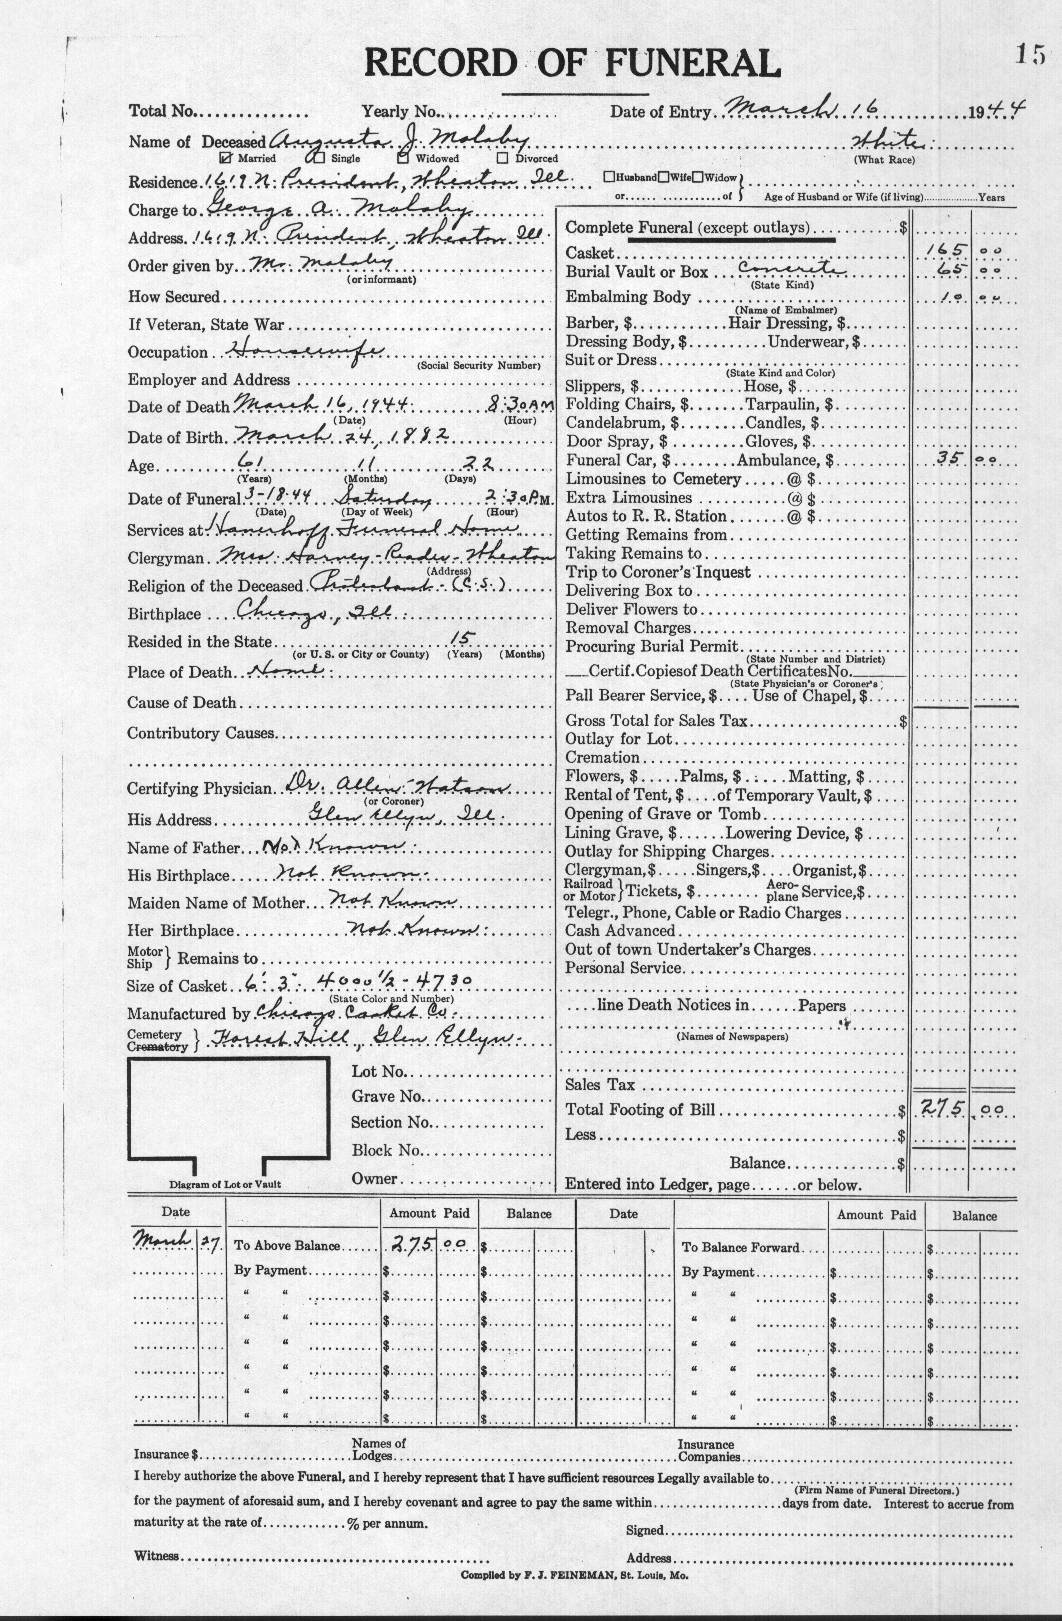 15
RECORD OF FUNERAL
Total No. Yearly No. Date of Entry March 16 1944
Name of Deceased Augusta J. Molsby White
☑ Married ☐ Single ☐ Widowed ☐ Divorced (What Race)
Residence 1619 N. President, Wheaton Ill. ☐Husband☐Wife☐Widow
or of Age of Husband or Wife (if living) Years
Charge to George A. Molsby
Address 1619 N. President, Wheaton Ill.
Order given by Mr. Molsby
(or informant)
How Secured
If Veteran, State War
Occupation Housewife
(Social Security Number)
Employer and Address
Date of Death March 16, 1944 8:30 AM
(Date) (Hour)
Date of Birth March 24, 1882
Age 61 11 22
(Years) (Months) (Days)
Date of Funeral 3-18-44 Saturday 2:30 P.M.
(Date) (Day of Week) (Hour)
Services at Hanerhoff Funeral Home
Clergyman Mrs. Harvey - Reader - Wheaton
(Address)
Religion of the Deceased Protestant - (C.S.)
Birthplace Chicago, Ill.
Resided in the State 15
(or U. S. or City or County) (Years) (Months)
Place of Death Home
Cause of Death
Contributory Causes
Certifying Physician Dr. Allen Watson
(or Coroner)
His Address Glen Ellyn, Ill.
Name of Father Not Known
His Birthplace Not Known
Maiden Name of Mother Not Known
Her Birthplace Not Known
Motor
Ship } Remains to
Size of Casket 6' 3" 4000 1/2 - 4730
(State Color and Number)
Manufactured by Chicago Casket Co.
Cemetery
Crematory } Forest Hill, Glen Ellyn
Lot No.
Grave No.
Section No.
Block No.
Owner
Diagram of Lot or Vault
Complete Funeral (except outlays) $
Casket 165 00
Burial Vault or Box Concrete 65 00
(State Kind)
Embalming Body 10 00
(Name of Embalmer)
Barber, $ Hair Dressing, $
Dressing Body, $ Underwear, $
Suit or Dress
(State Kind and Color)
Slippers, $ Hose, $
Folding Chairs, $ Tarpaulin, $
Candelabrum, $ Candles, $
Door Spray, $ Gloves, $
Funeral Car, $ Ambulance, $ 35 00
Limousines to Cemetery @ $
Extra Limousines @ $
Autos to R. R. Station @ $
Getting Remains from
Taking Remains to
Trip to Coroner's Inquest
Delivering Box to
Deliver Flowers to
Removal Charges
Procuring Burial Permit
(State Number and District)
Certif. Copies of Death Certificates No.
(State Physician's or Coroner's)
Pall Bearer Service, $ Use of Chapel, $
Gross Total for Sales Tax $
Outlay for Lot
Cremation
Flowers, $ Palms, $ Matting, $
Rental of Tent, $ of Temporary Vault, $
Opening of Grave or Tomb
Lining Grave, $ Lowering Device, $
Outlay for Shipping Charges
Clergyman, $ Singers, $ Organist, $
Railroad
or Motor } Tickets, $ Aero-
plane Service, $
Telegr., Phone, Cable or Radio Charges
Cash Advanced
Out of town Undertaker's Charges
Personal Service
line Death Notices in Papers
(Names of Newspapers)
Sales Tax
Total Footing of Bill $ 275 00
Less $
Balance $
Entered into Ledger, page or below.
Date Amount Paid Balance Date Amount Paid Balance
March 27 To Above Balance 275 00 $ To Balance Forward $
By Payment $ $ By Payment $ $
" " $ $ " " $ $
" " $ $ " " $ $
" " $ $ " " $ $
" " $ $ " " $ $
" " $ $ " " $ $
" " $ $ " " $ $
Insurance $ Names of
Lodges Insurance
Companies
I hereby authorize the above Funeral, and I hereby represent that I have sufficient resources Legally available to
(Firm Name of Funeral Directors.)
for the payment of aforesaid sum, and I hereby covenant and agree to pay the same within days from date. Interest to accrue from
maturity at the rate of % per annum.
Signed
Witness Address
Compiled by F. J. FEINEMAN, St. Louis, Mo.